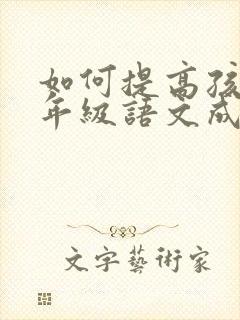 如何提高孩
年級語文成
文字藝術家